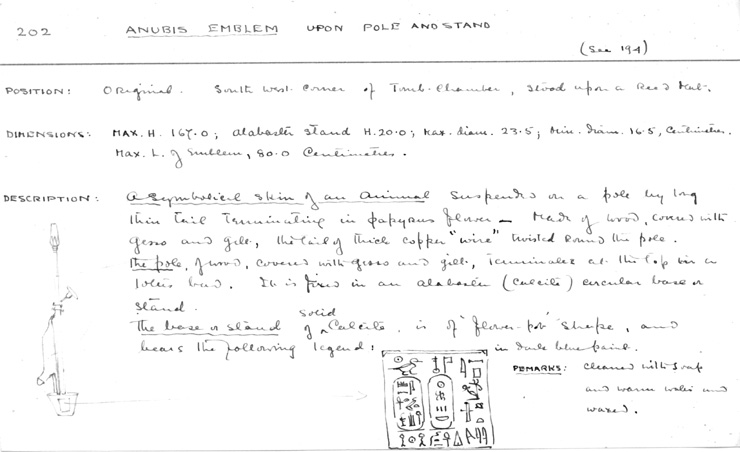 202 ANUBIS EMBLEM UPON POLE AND STAND
(See 194)
POSITION: Original. South West Corner of Tomb-Chamber, stood upon a Reed Mat.
DIMENSIONS: MAX. H. 167.0; alabaster stand H. 20.0; Max. diam. 23.5; Min. diam. 16.5, Centimetres.
Max. L. of Emblem, 80.0 Centimetres.
DESCRIPTION: A symbolical skin of an animal suspended on a pole by long
thin tail terminating in papyrus flower — Made of wood, covered with
gesso and gilt, the tail of thick copper "wire" twisted round the pole.
The pole, of wood, covered with gesso and gilt, terminates at the top in a
lotus bud. It is fixed in an alabaster (calcite) circular base or
stand.
The base or stand of solid Calcite, is of "flower-pot" shape, and
bears the following legend: in dark blue paint.
REMARKS: Cleaned with soap
and warm water and
waxed.